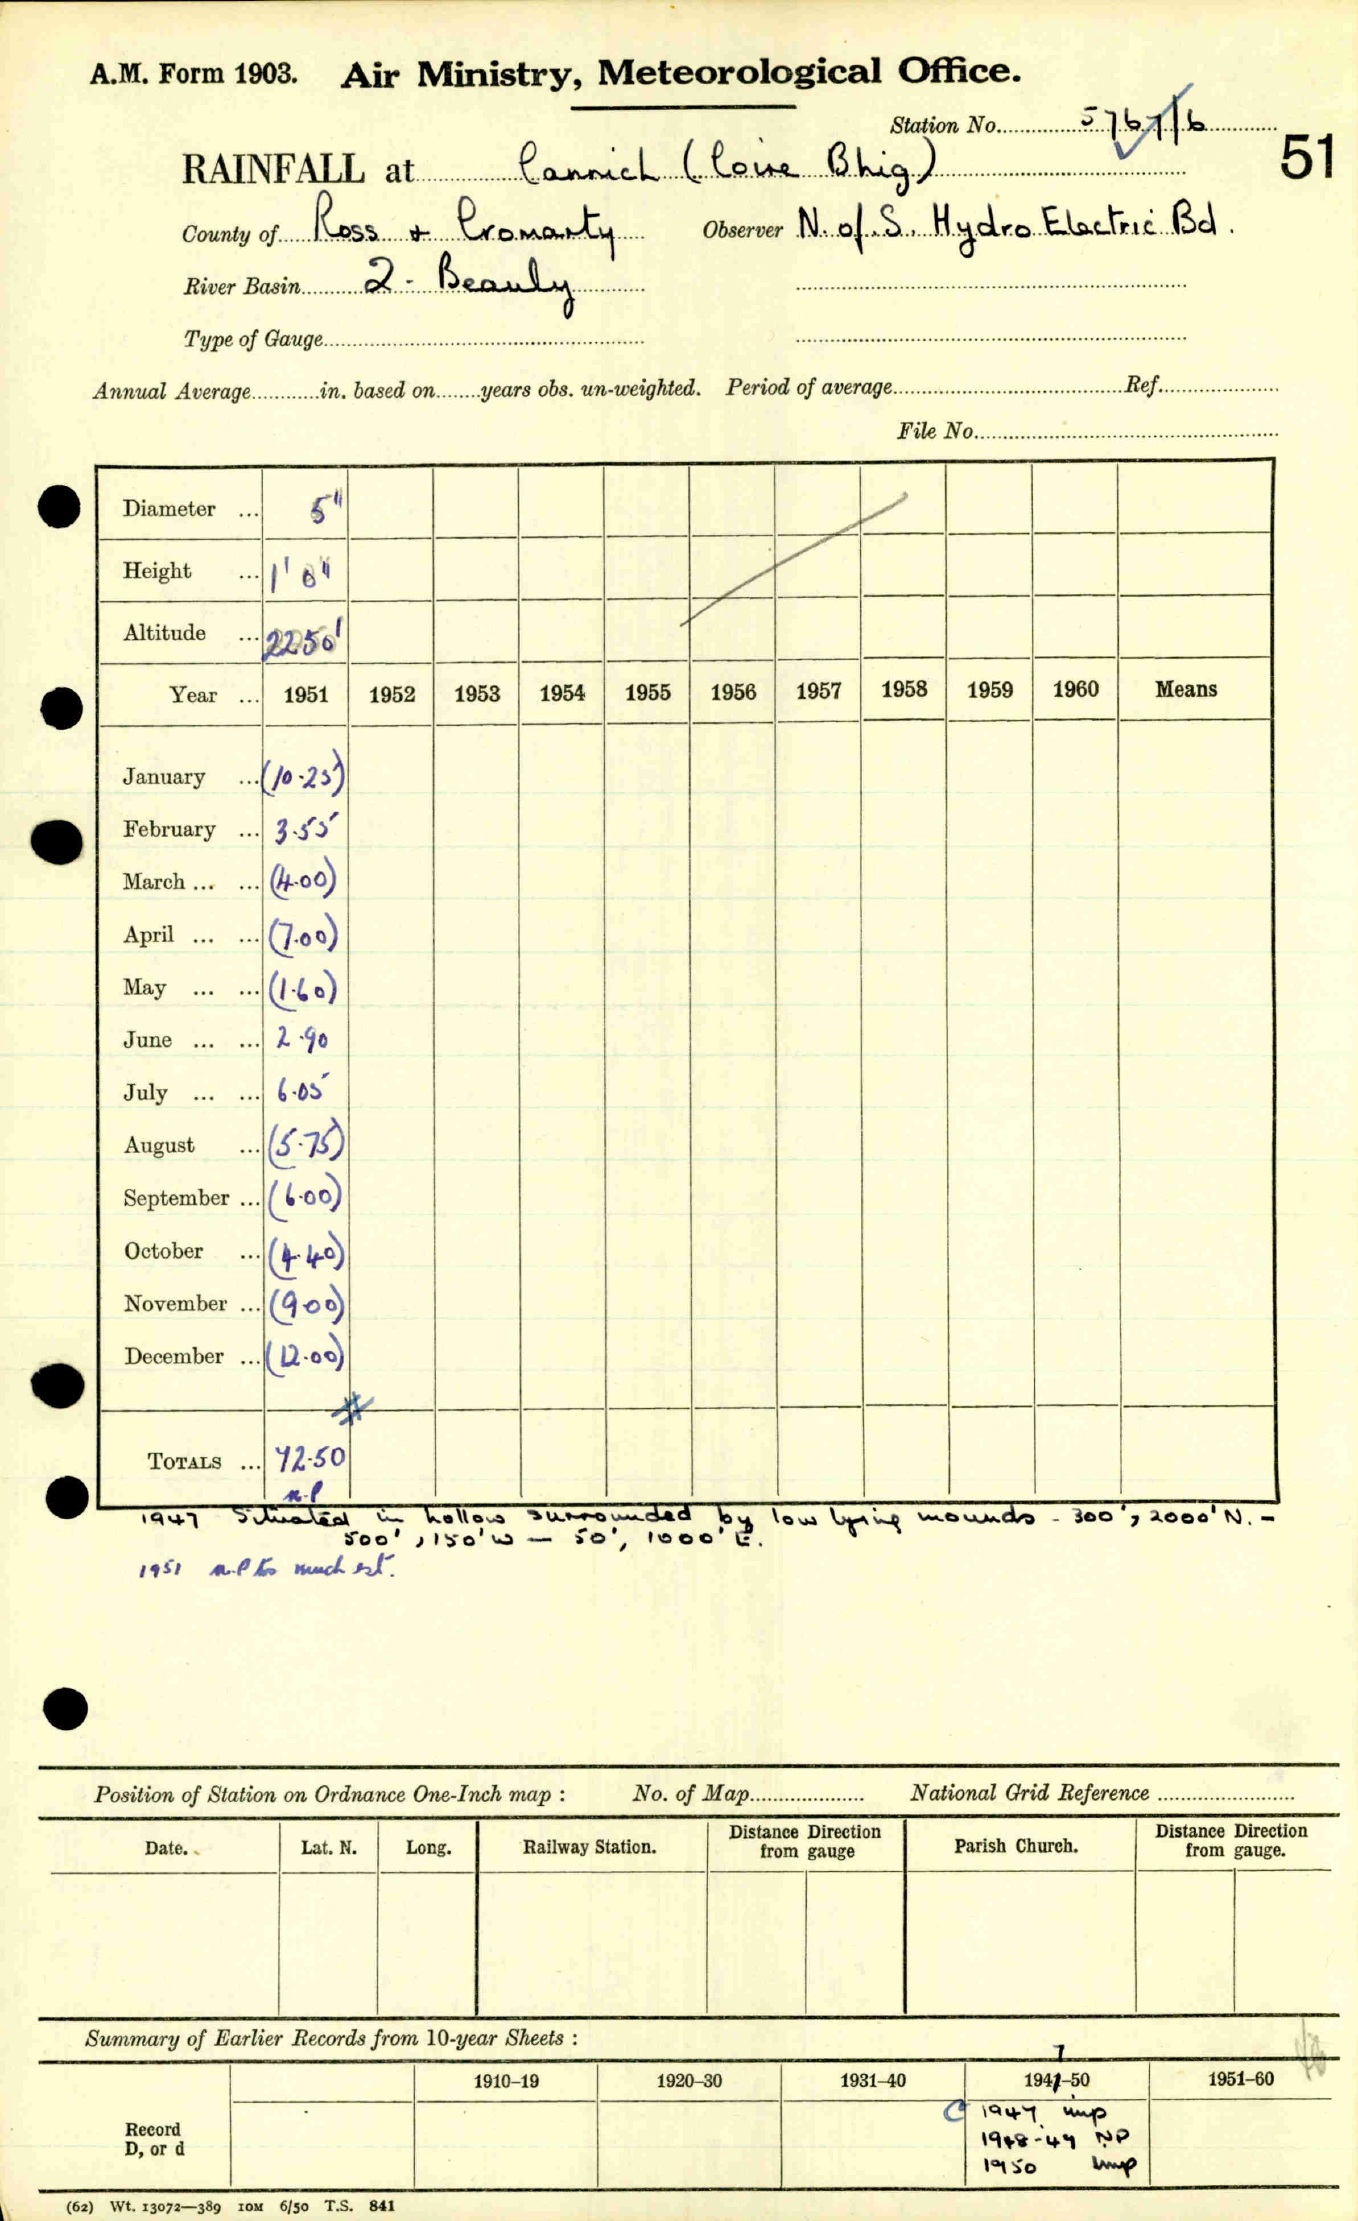 A.M. Form 1903. Air Ministry, Meteorological Office.
Station No. 5767/6
51
RAINFALL at Cannich (Coire Bhig)
County of Ross + Cromarty Observer N. of S. Hydro Electric Bd.
River Basin 2 - Beauly
Type of Gauge
Annual Average in. based on years obs. un-weighted. Period of average Ref.
File No.
Diameter ... 5"
Height ... 1' 0"
Altitude ... 2250'
Year ... 1951 1952 1953 1954 1955 1956 1957 1958 1959 1960 Means
January ... (10.25)
February ... 3.55
March ... ... (4.00)
April ... ... (7.00)
May ... ... (1.60)
June ... ... 2.90
July ... ... 6.05
August ... (5.75)
September ... (6.00)
October ... (4.40)
November ... (9.00)
December ... (12.00)
#
TOTALS ... 72.50
n.P
1947 Situated in hollow surrounded by low lying mounds - 300', 2000' N. -
500', 150' W — 50', 1000' E.
1951 n.P too much est.
Position of Station on Ordnance One-Inch map : No. of Map National Grid Reference
Date. Lat. N. Long. Railway Station. Distance Direction from gauge Parish Church. Distance Direction from gauge.
Summary of Earlier Records from 10-year Sheets :
7
1910–19 1920–30 1931–40 1941–50 1951–60
Record
D, or d
C 1947 imp
1948-49 NP
1950 imp
(62) Wt. 13072—389 10M 6/50 T.S. 841